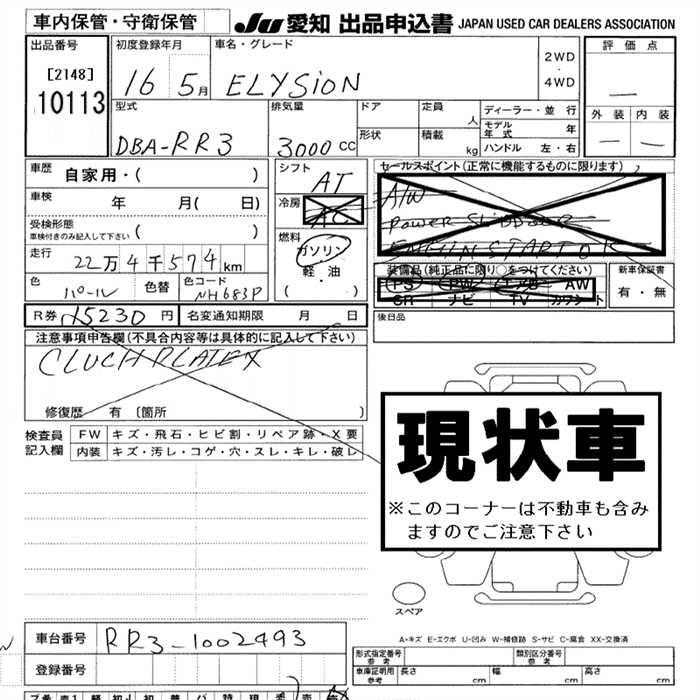 車内保管・守衛保管
JU 愛知 出品申込書 JAPAN USED CAR DEALERS ASSOCIATION
出品番号
[2148]
10113
初度登録年月
16 5月
車名・グレード
ELYSiON
2WD
・
4WD
評価点
—
外装 内装
— —
型式
DBA-RR3
排気量
3000 CC
ドア
形状
定員 人
積載 kg
ディーラー・並行
モデル年式 年
ハンドル 左・右
車歴 自家用・( )
車検 年 月( 日)
受検形態
車検付きのみ記入して下さい ( )
走行 22万4千574km
色 パール 色替 色コード NH683P
シフト AT
冷房 AC
燃料
ガソリン
軽・油
( )
セールスポイント(正常に機能するものに限ります)
A/W
Power SLiDDOOR
ENGiN STARTOR
装備品(純正品に限り○をつけてください)
PS PW エアB AW
SR ナビ TV カワシート
新車保証書
有・無
R券 15230円 名変通知期限 月 日
後日品
注意事項申告欄(不具合内容等は具体的に記入して下さい)
CLUCH PLATE X
修復歴 有〔箇所 〕
検査員
記入欄
FW キズ・飛石・ヒビ割・リペア跡・X要
内装 キズ・汚レ・コゲ・穴・スレ・キレ・破レ
現状車
※このコーナーは不動車も含み
ますのでご注意下さい
スペア
A・キズ E・エクボ U・凹み W・補修跡 S・サビ C・腐食 XX・交換済
車台番号 RR3-1002493
登録番号
形式指定番号
参考
類別区分番号
参考
車庫証明用
参考
長さ cm 幅 cm 高さ cm